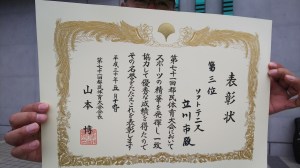 表彰状
第三位
ソフトテニス
立川市殿
第七十一回都民体育大会において
スポーツの精華を発揮し一致
協力して優秀な成績を得たので
その名誉をたたえこれを表彰します
平成三十年五月十三日
第七十一回都民体育大会会長
山本博